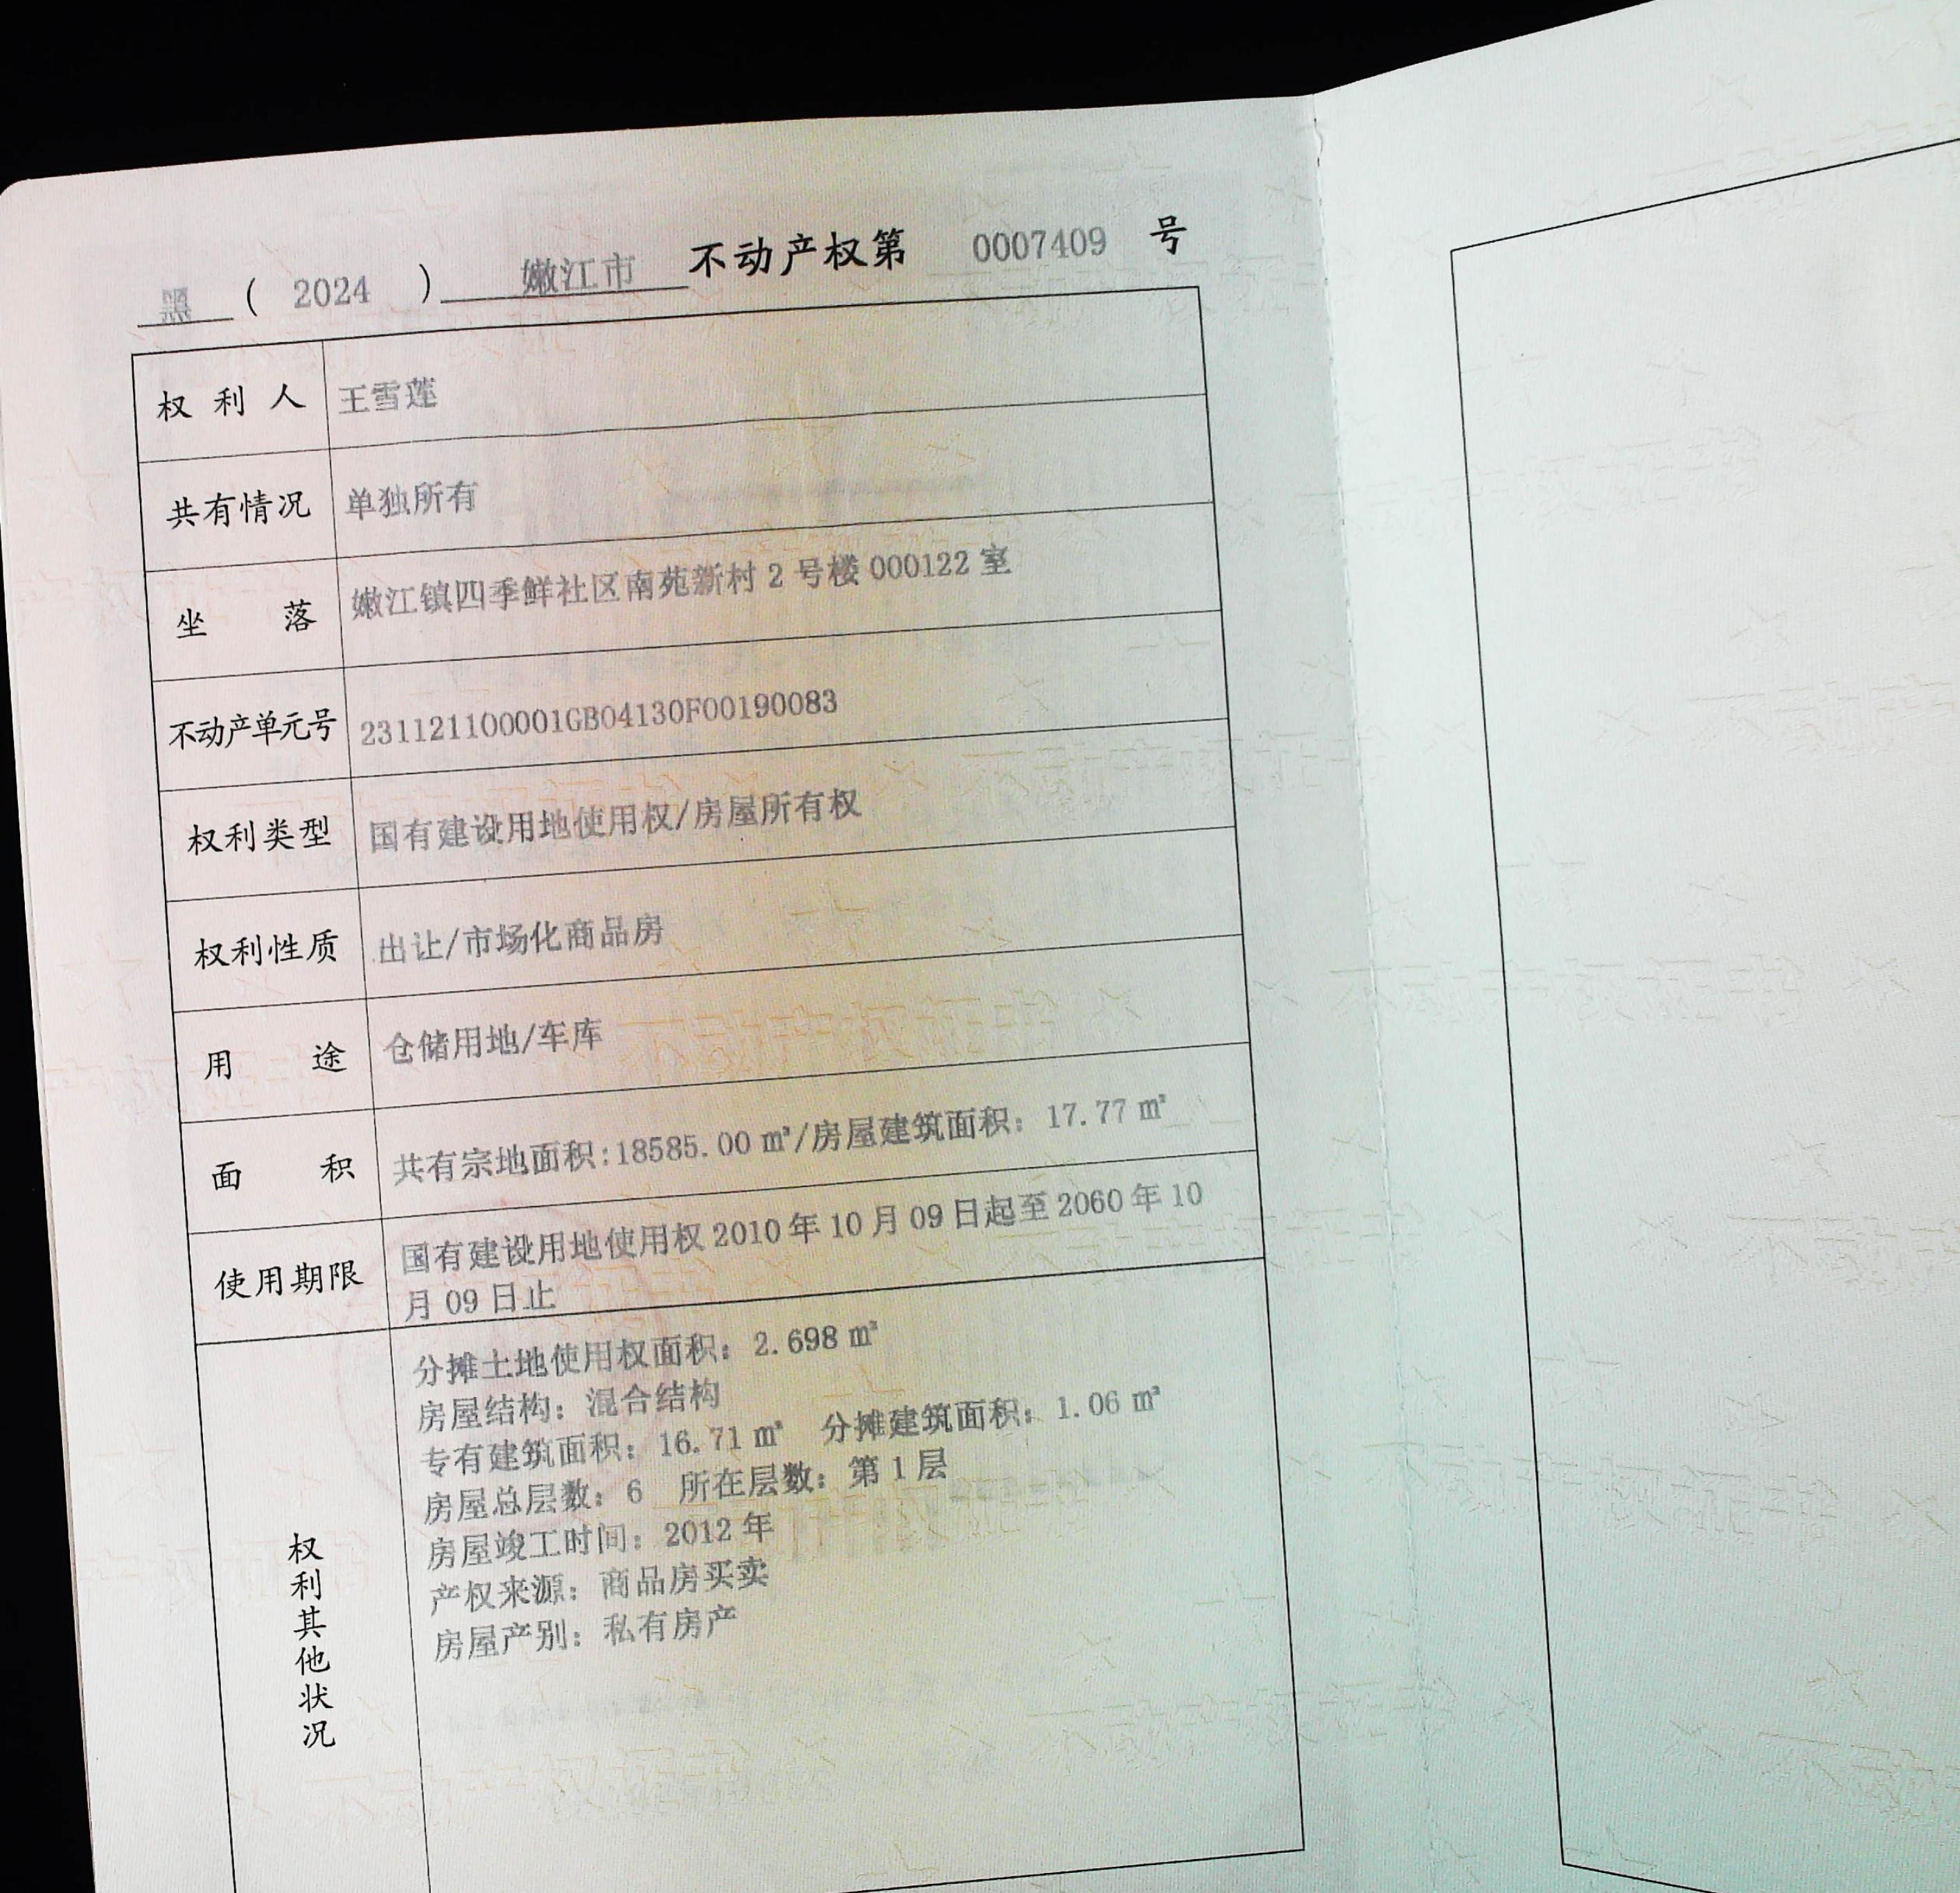 黑 ( 2024 ) 嫩江市 不动产权第 0007409 号
权利人 王雪莲
共有情况 单独所有
坐落 嫩江镇四季鲜社区南苑新村 2 号楼 000122 室
不动产单元号 231121100001GB04130F00190083
权利类型 国有建设用地使用权/房屋所有权
权利性质 出让/市场化商品房
用途 仓储用地/车库
面积 共有宗地面积:18585.00 ㎡/房屋建筑面积: 17.77 ㎡
使用期限 国有建设用地使用权 2010 年 10 月 09 日起至 2060 年 10
月 09 日止
权利其他状况
分摊土地使用权面积: 2.698 ㎡
房屋结构: 混合结构
专有建筑面积: 16.71 ㎡ 分摊建筑面积: 1.06 ㎡
房屋总层数: 6 所在层数: 第 1 层
房屋竣工时间: 2012 年
产权来源: 商品房买卖
房屋产别: 私有房产